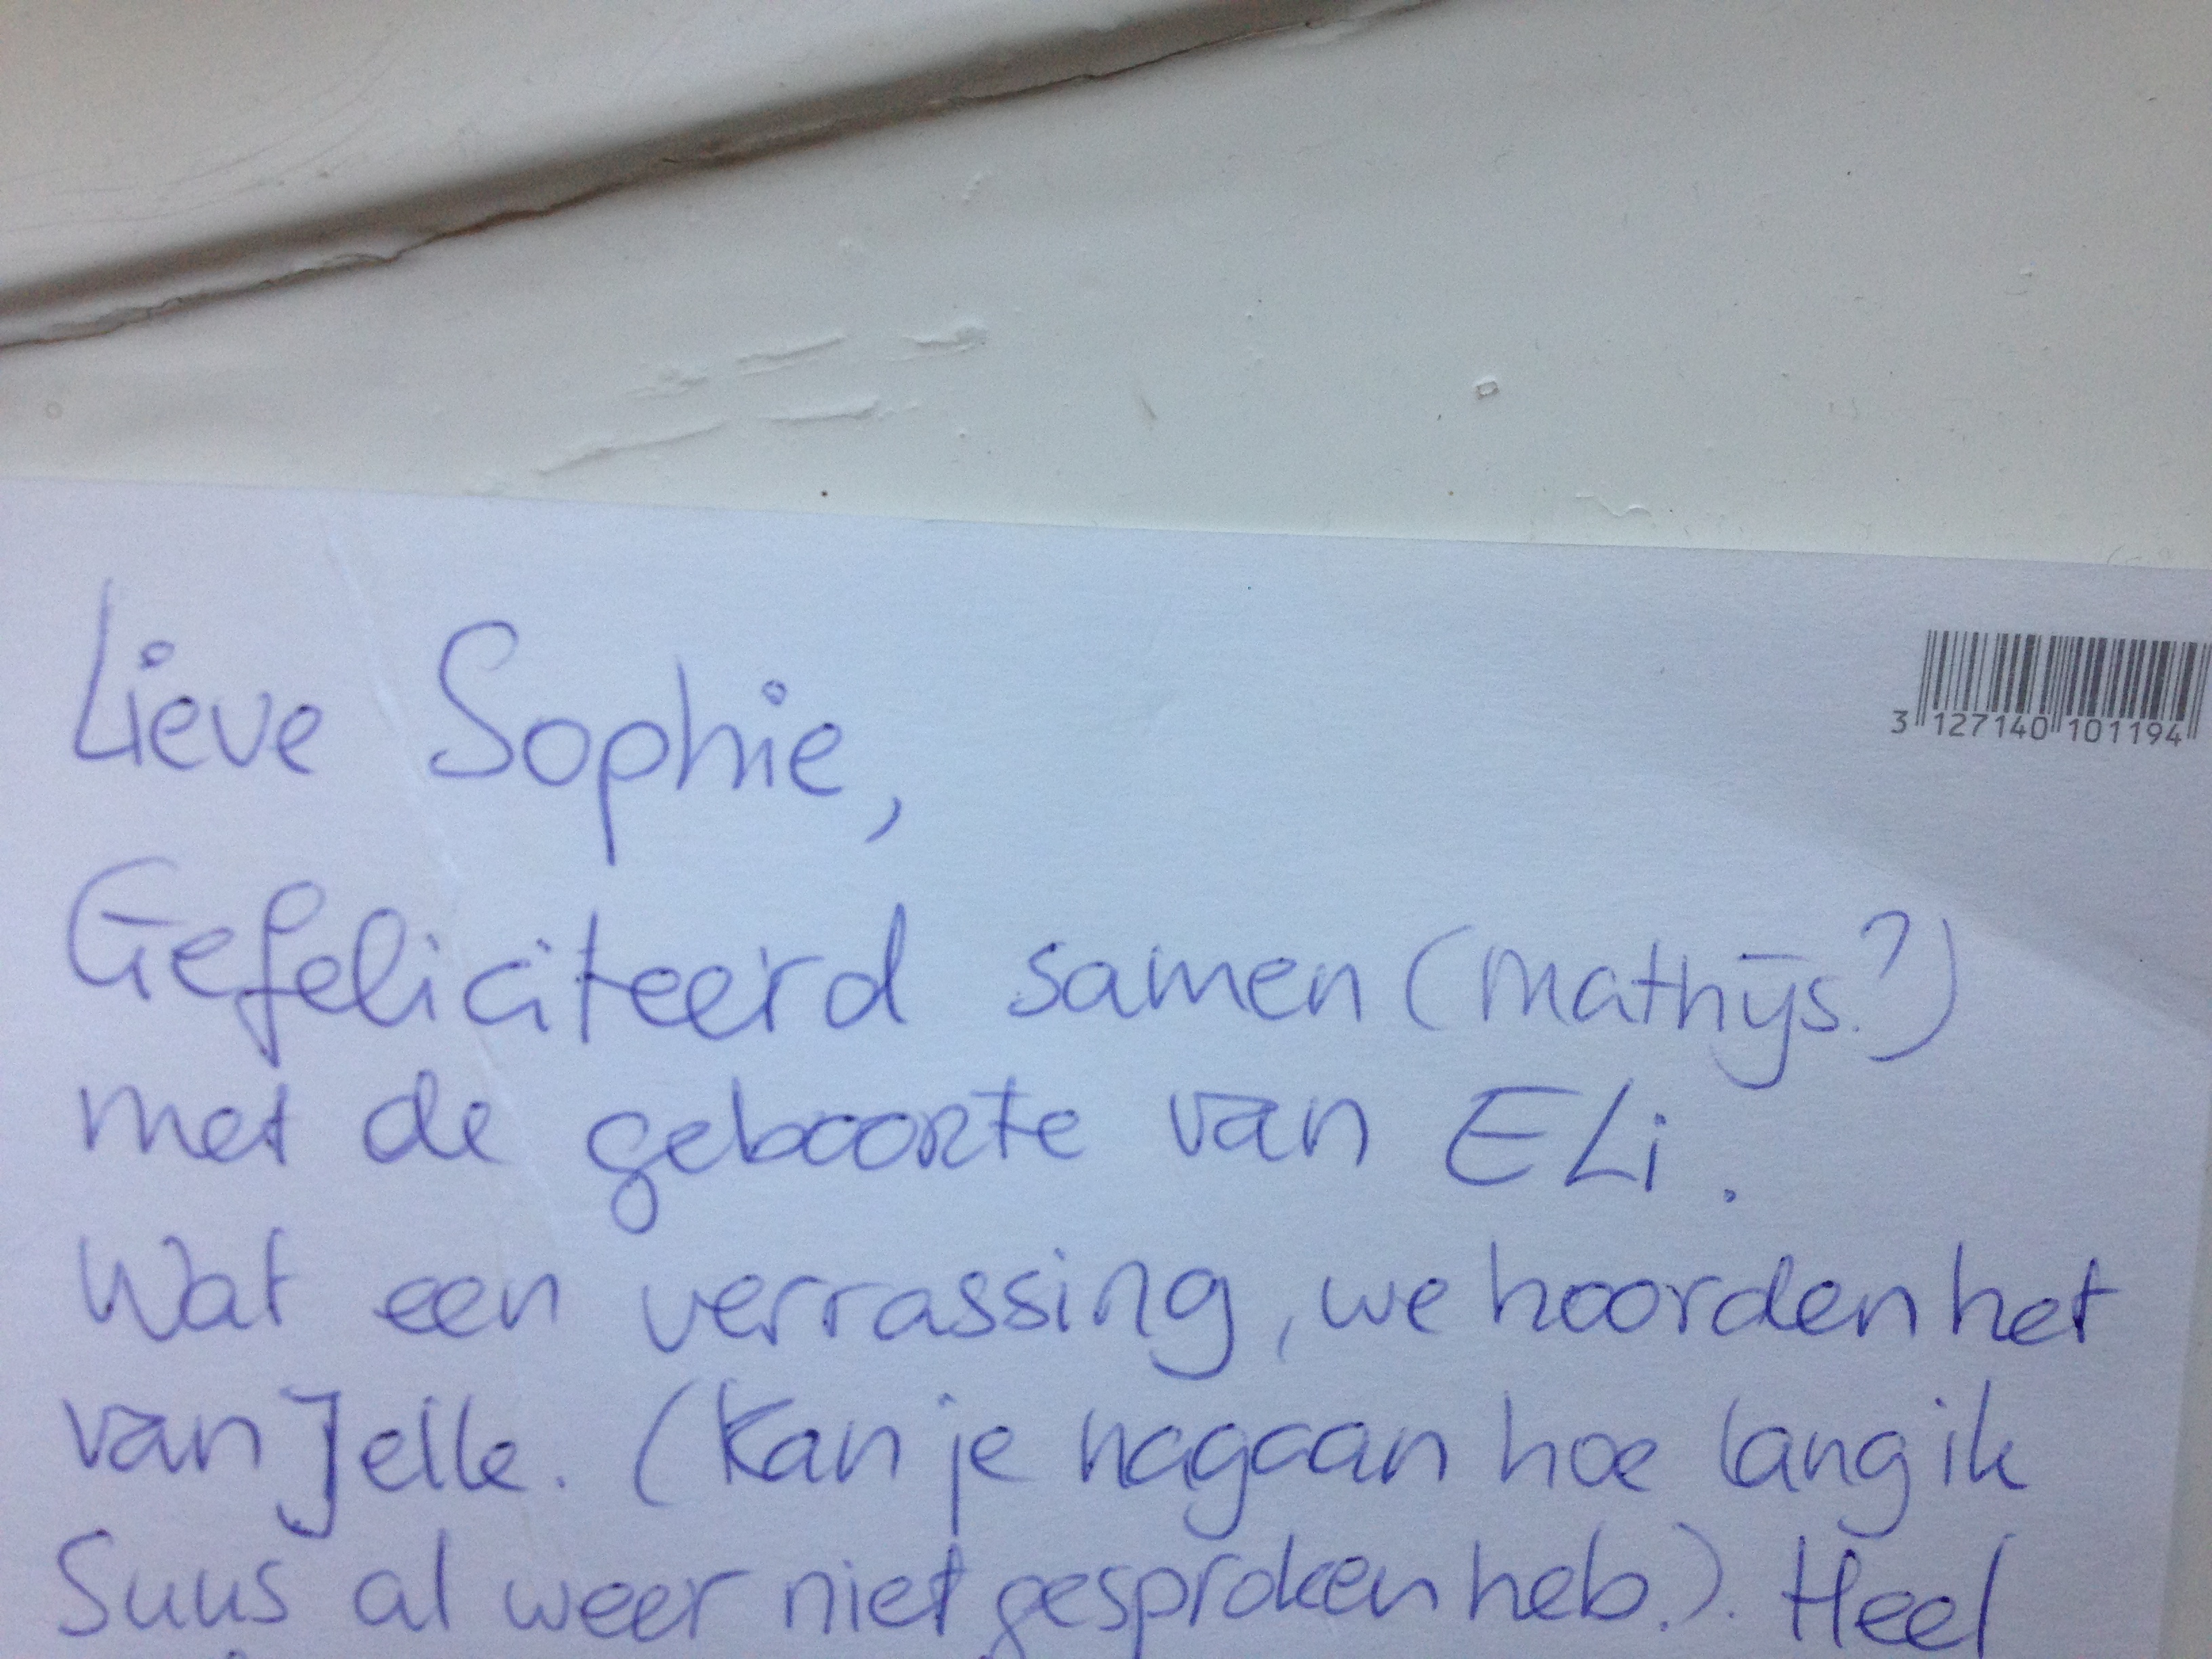 Lieve Sophie,
3 127140 101194
Gefeliciteerd samen (Mathijs?)
met de geboorte van ELi.
Wat een verrassing, we hoorden het
van Jelle. (Kan je nagaan hoe lang ik
Suus al weer niet gesproken heb.). Heel